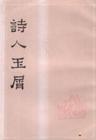 詩人玉屑